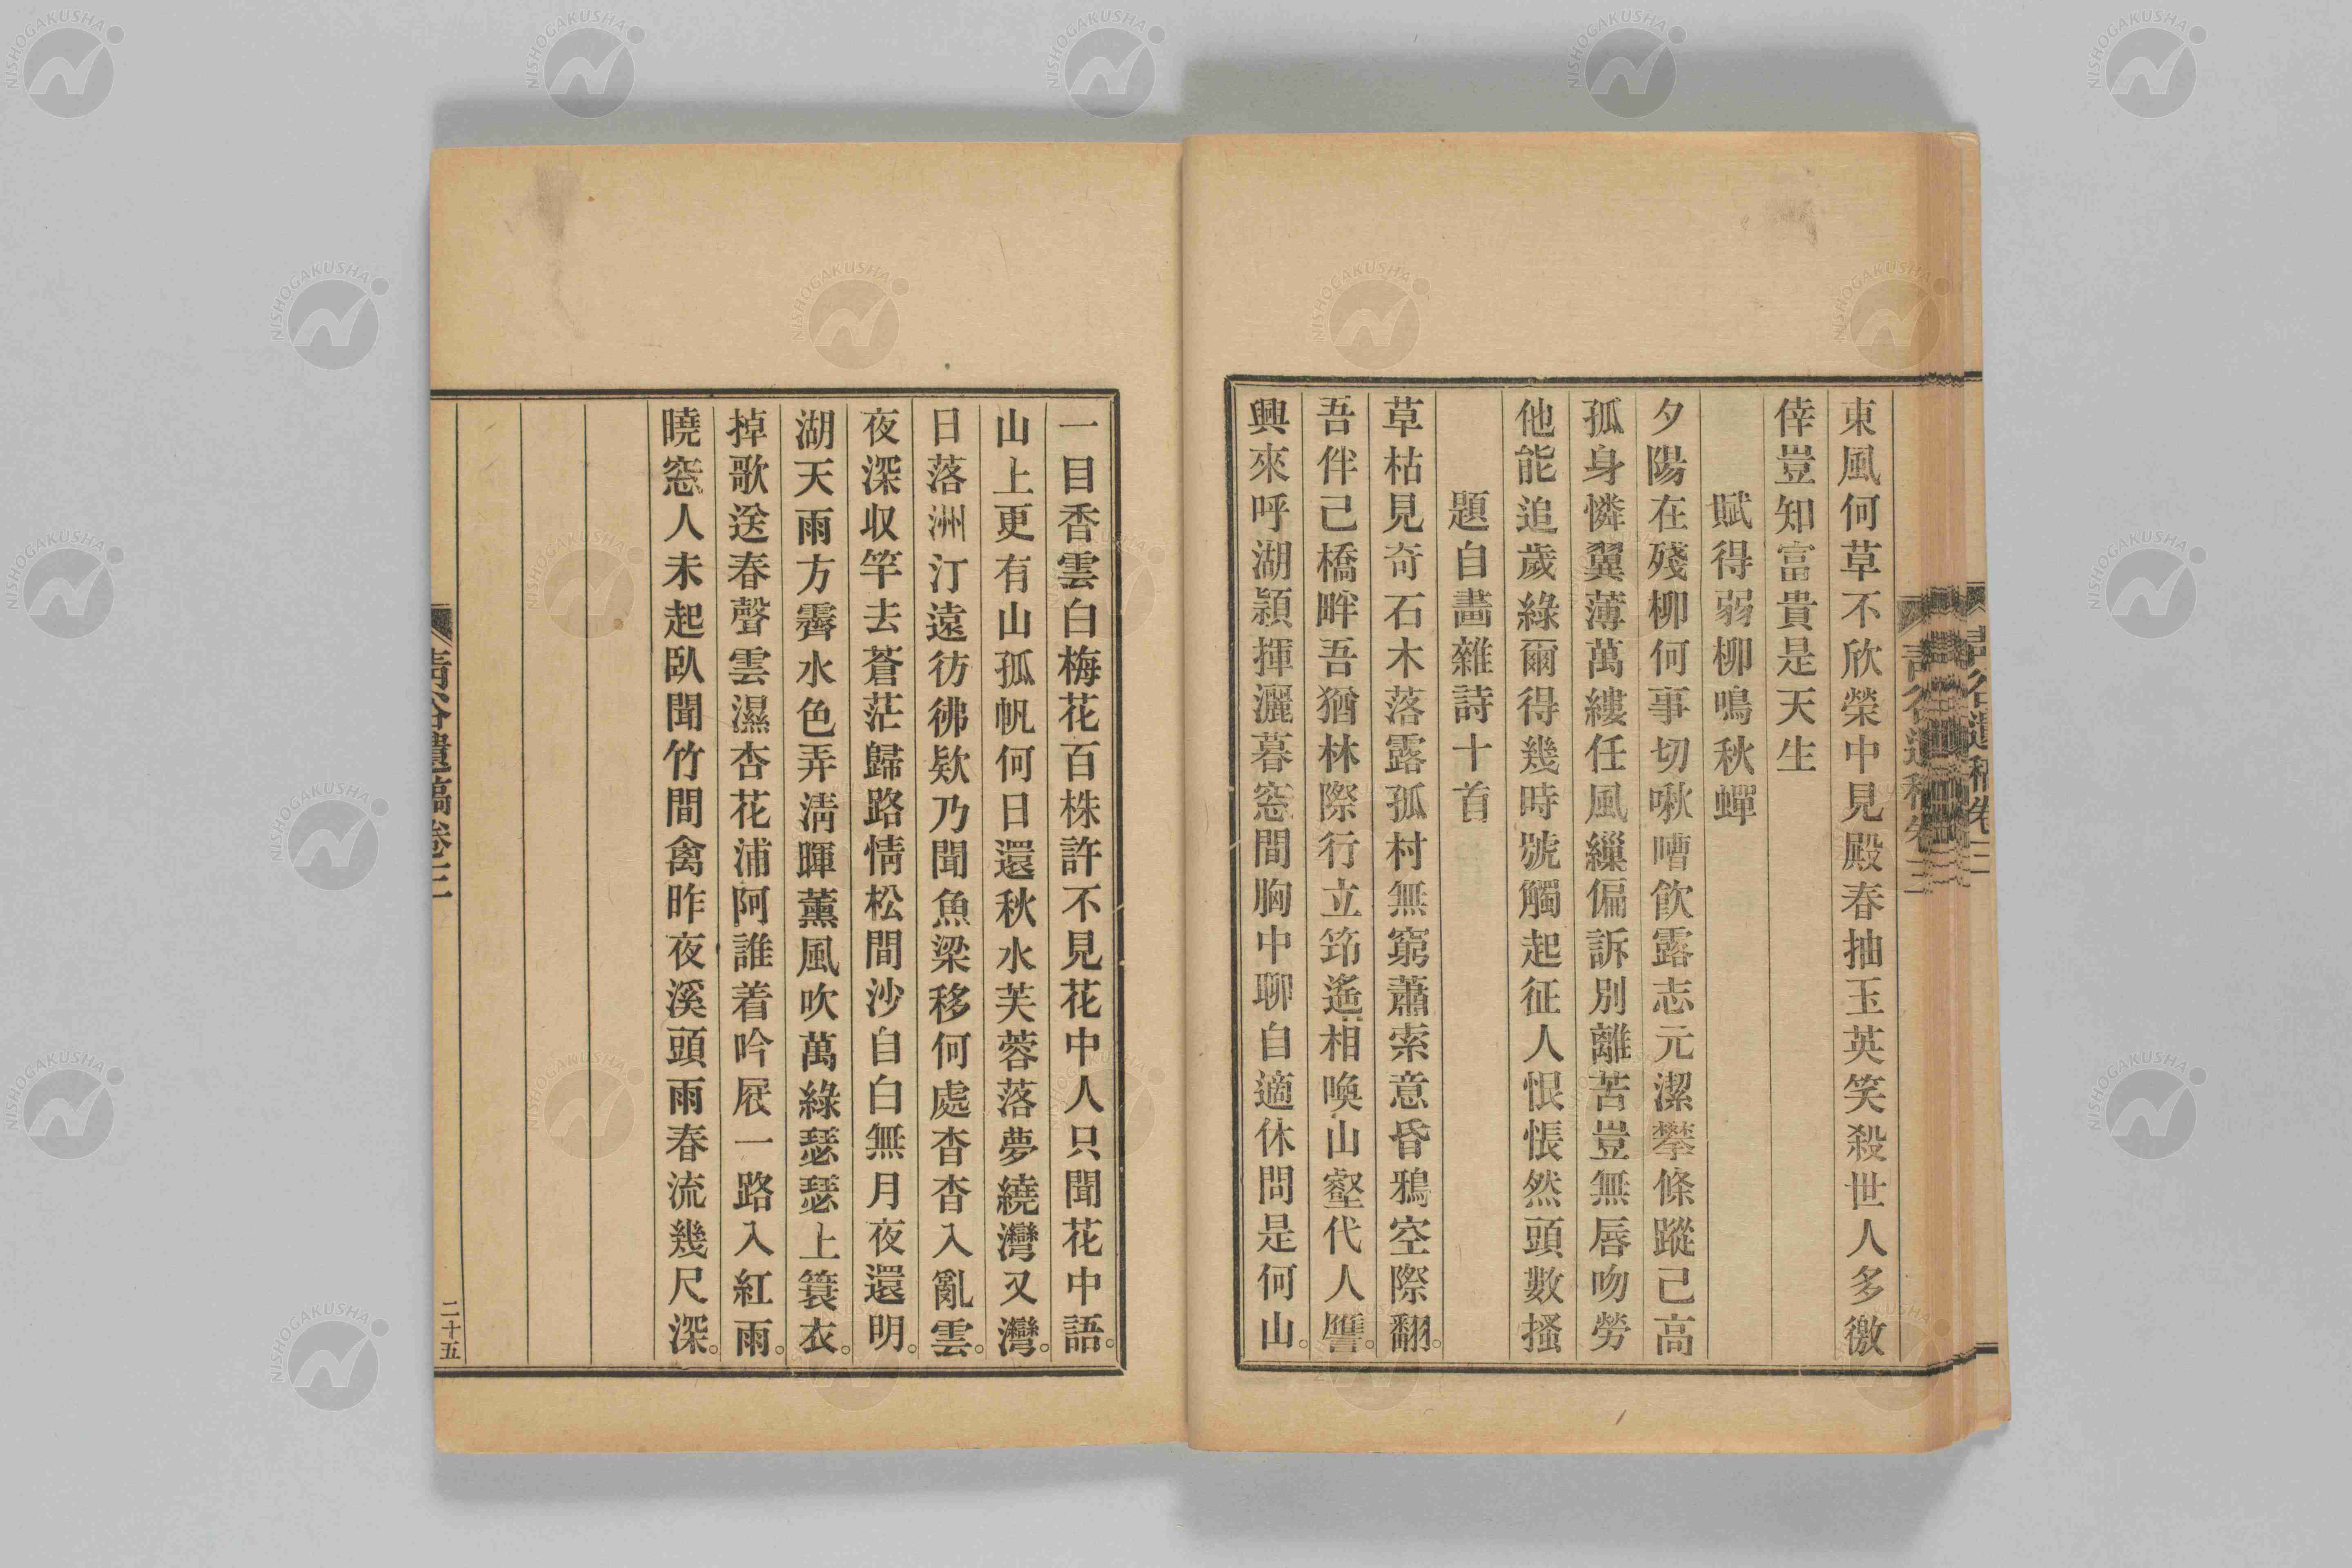 東風何草不欣榮中見殿春抽玉英笑殺世人多徼
倖豈知富貴是天生
賦得弱柳鳴秋蟬
夕陽在殘柳何事切啾嘈飲露志元潔攀條蹤己高
孤身憐翼薄萬縷任風繅偏訴別離苦豈無唇吻勞
他能追歲綠爾得幾時號觸起征人恨悵然頭數搔
題自畵雜詩十首
草枯見奇石木落露孤村無窮蕭索意昏鴉空際翻。
吾伴己橋畔吾猶林際行立筇遙相喚山壑代人譍。
興來呼湖穎揮灑暮窓間胸中聊自適休問是何山。
一目香雲白梅花百株許不見花中人只聞花中語。
山上更有山孤帆何日還秋水芙蓉落夢繞灣又灣。
日落洲汀遠彷彿欵乃聞魚梁移何處杳杳入亂雲。
夜深収竿去蒼茫歸路情松間沙自白無月夜還明。
湖天雨方霽水色弄淸暉薰風吹萬綠瑟瑟上簑衣。
掉歌送春聲雲濕杏花浦阿誰着吟屐一路入紅雨。
曉窓人未起臥聞竹間禽昨夜溪頭雨春流幾尺深。
淸谷遺稿卷三
二十五
NISHOGAKUSHA